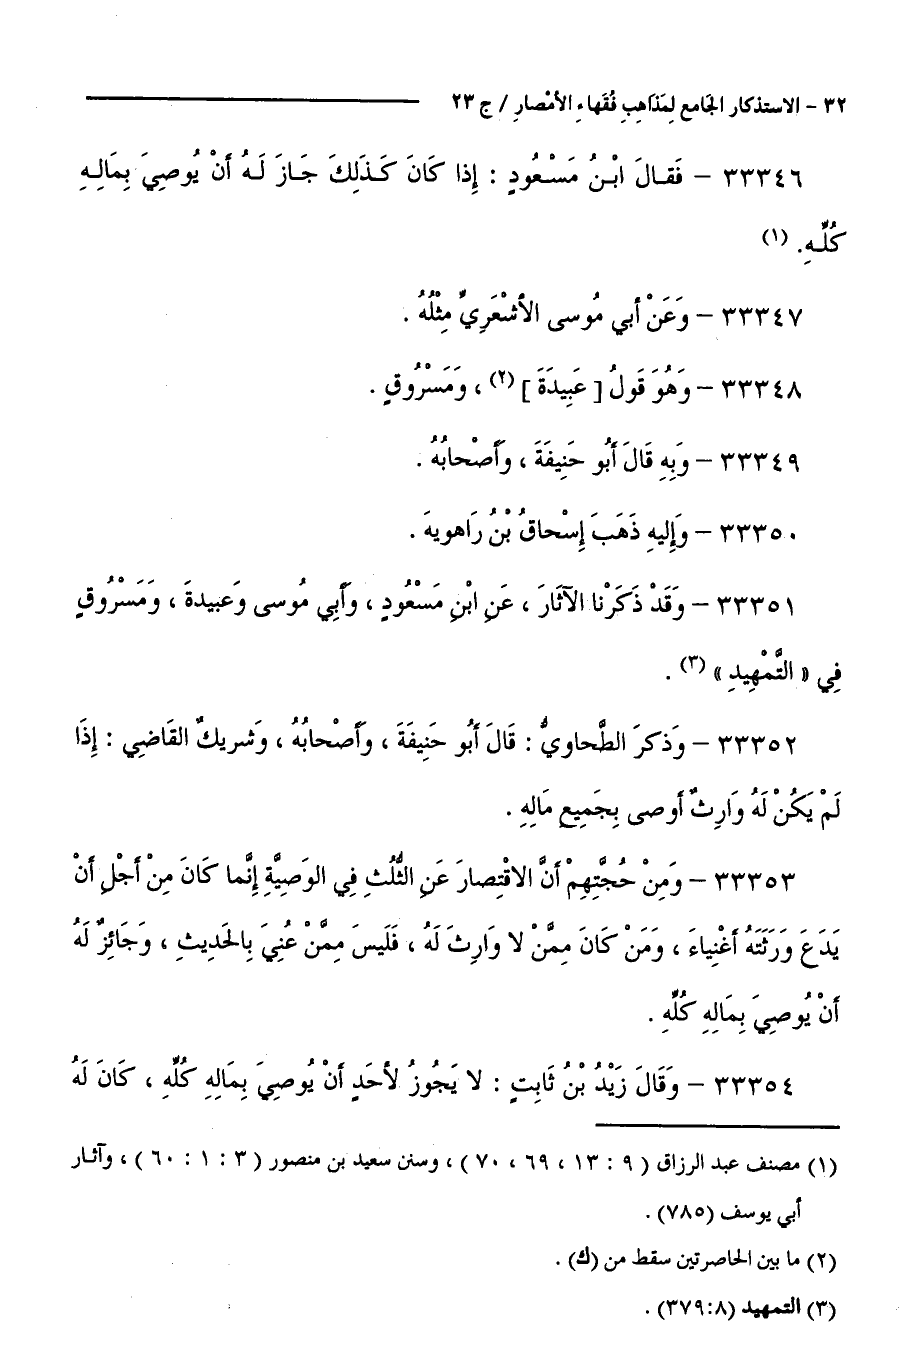 ٣٢ - الاستذكار الجَامع لِمَذَاهِبِ فُقَهاءِ الأمْصارِ / ج ٢٣
٣٣٣٤٦ - فَقالَ ابْنُ مَسْعُودٍ : إِذا كَانَ كَذَلِكَ جَازَ لَهُ أَنْ يُوصِيَ بِمَالِهِ
كُلِّهِ. (١)
٣٣٣٤٧ - وَعَنْ أَبي مُوسى الأشْعَرِيِّ مِثْلُهُ .
٣٣٣٤٨ - وَهُوَ قَولُ [ عَبِيدَةَ ] (٢) ، وَمَسْرُوقٍ .
٣٣٣٤٩ - وَبِهِ قَالَ أَبُو حَنِيفَةَ ، وَأَصْحابُهُ .
٣٣٣٥٠ - وَإِليهِ ذَهَبَ إِسْحاقُ بْنُ رَاهويهَ .
٣٣٣٥١ - وَقَدْ ذَكَرْنا الآثَارَ ، عَنِ ابْنِ مَسْعُودٍ ، وَأَبِي مُوسى وَعبيدةَ ، وَمَسْرُوقٍ
فِي « التَّمْهِيدِ » (٣) .
٣٣٣٥٢ - وَذكرَ الطَّحاويُّ : قَالَ أَبُو حَنِيفَةَ ، وَأَصْحابُهُ ، وَشريكٌ القَاضِي : إِذَا
لَمْ يَكُنْ لَهُ وَارِثٌ أَوصى بِجَمِيعِ مَالِهِ .
٣٣٣٥٣ - وَمِنْ حُجَّتِهِمْ أَنَّ الاقْتِصارَ عَنِ الثُّلُثِ فِي الوَصِيَّةِ إِنَّما كَانَ مِنْ أَجْلِ أَنْ
يَدَعَ وَرَثَتَهُ أَغْنِياءَ ، وَمَنْ كَانَ مِمَّنْ لا وَارِثَ لَهُ ، فَلَيسَ مِمَّنْ عُنِيَ بِالحَدِيثِ ، وَجَائِزٌ لَهُ
أَنْ يُوصِيَ بِمَالِهِ كُلِّهِ .
٣٣٣٥٤ - وَقَالَ زَيْدُ بْنُ ثَابِتٍ : لا يَجُوزُ لأحَدٍ أَنْ يُوصِيَ بِمَالِهِ كُلِّهِ ، كَانَ لَهُ
(١) مصنف عبد الرزاق ( ٩ : ١٣ ، ٦٩ ، ٧٠ ) ، وسنن سعيد بن منصور ( ٣ : ١ : ٦٠ ) ، وآثار
أبي يوسف (٧٨٥) .
(٢) ما بين الحاصرتين سقط من (ك) .
(٣) التمهيد (٣٧٩:٨) .